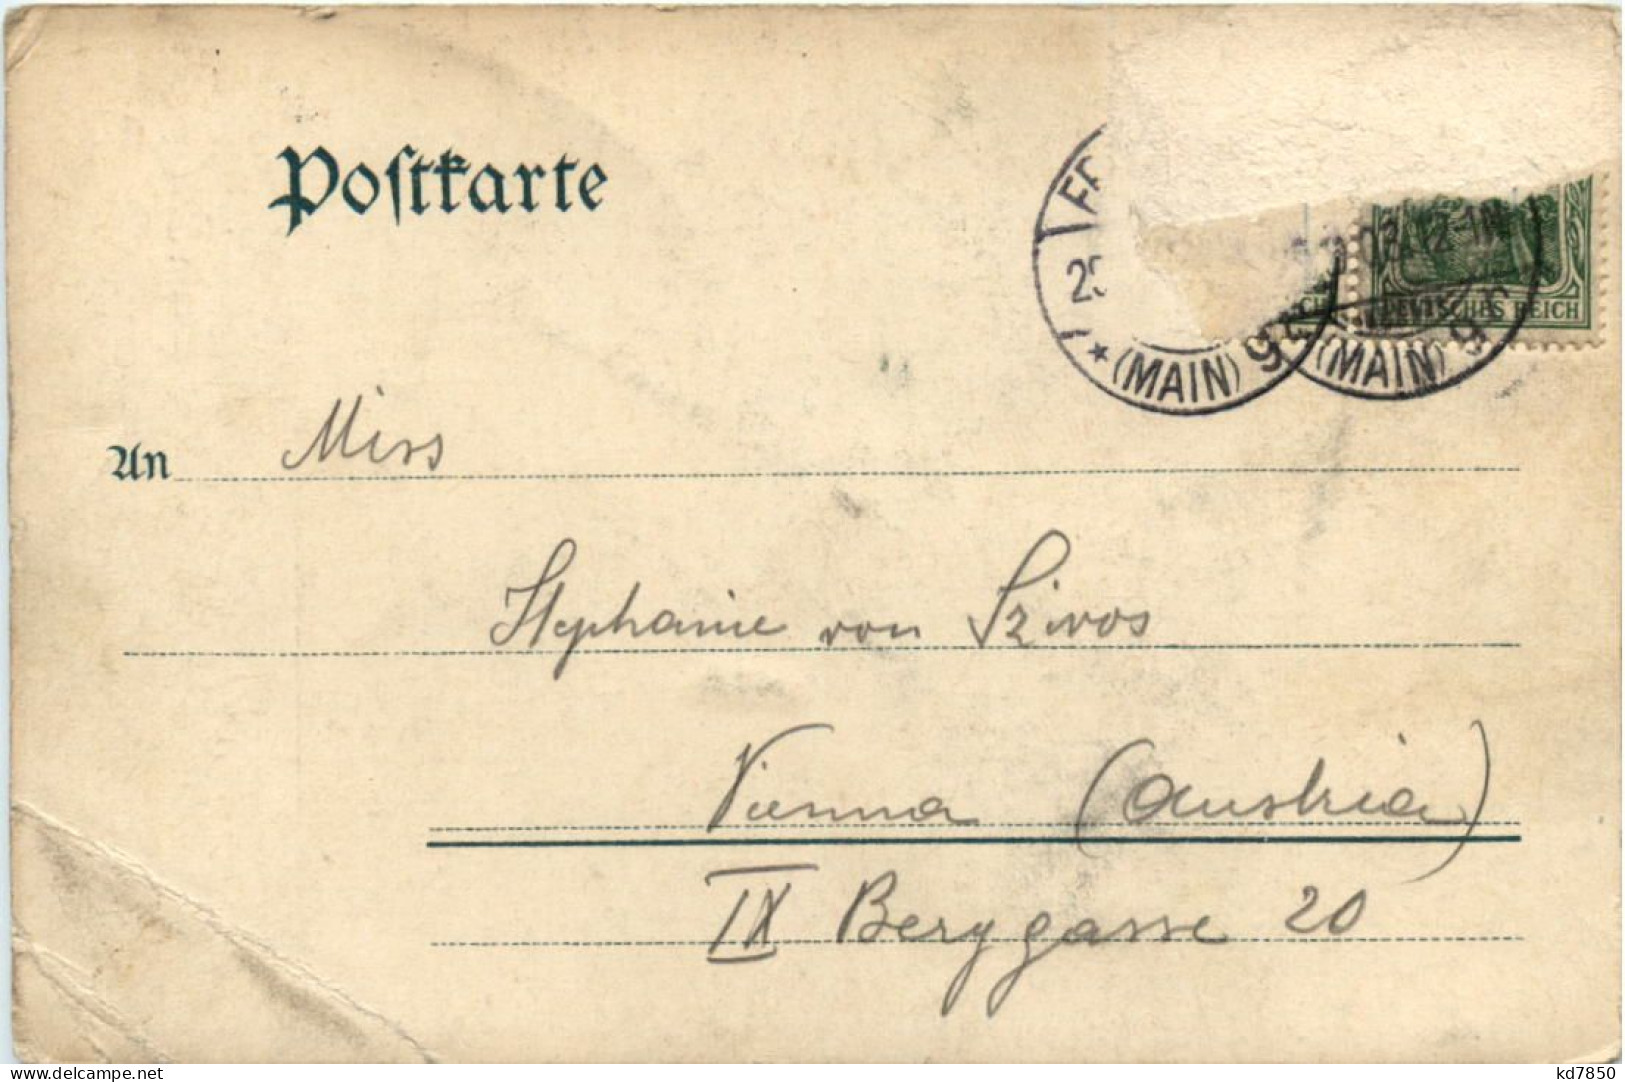 Postkarte
(MAIN) 9
03.12-1N
DEUTSCHES REICH
(MAIN) 9
An Miss
Stephanie von Szivos
Vienna (Austria)
IX Berggasse 20
www.delcampe.net
kd7850